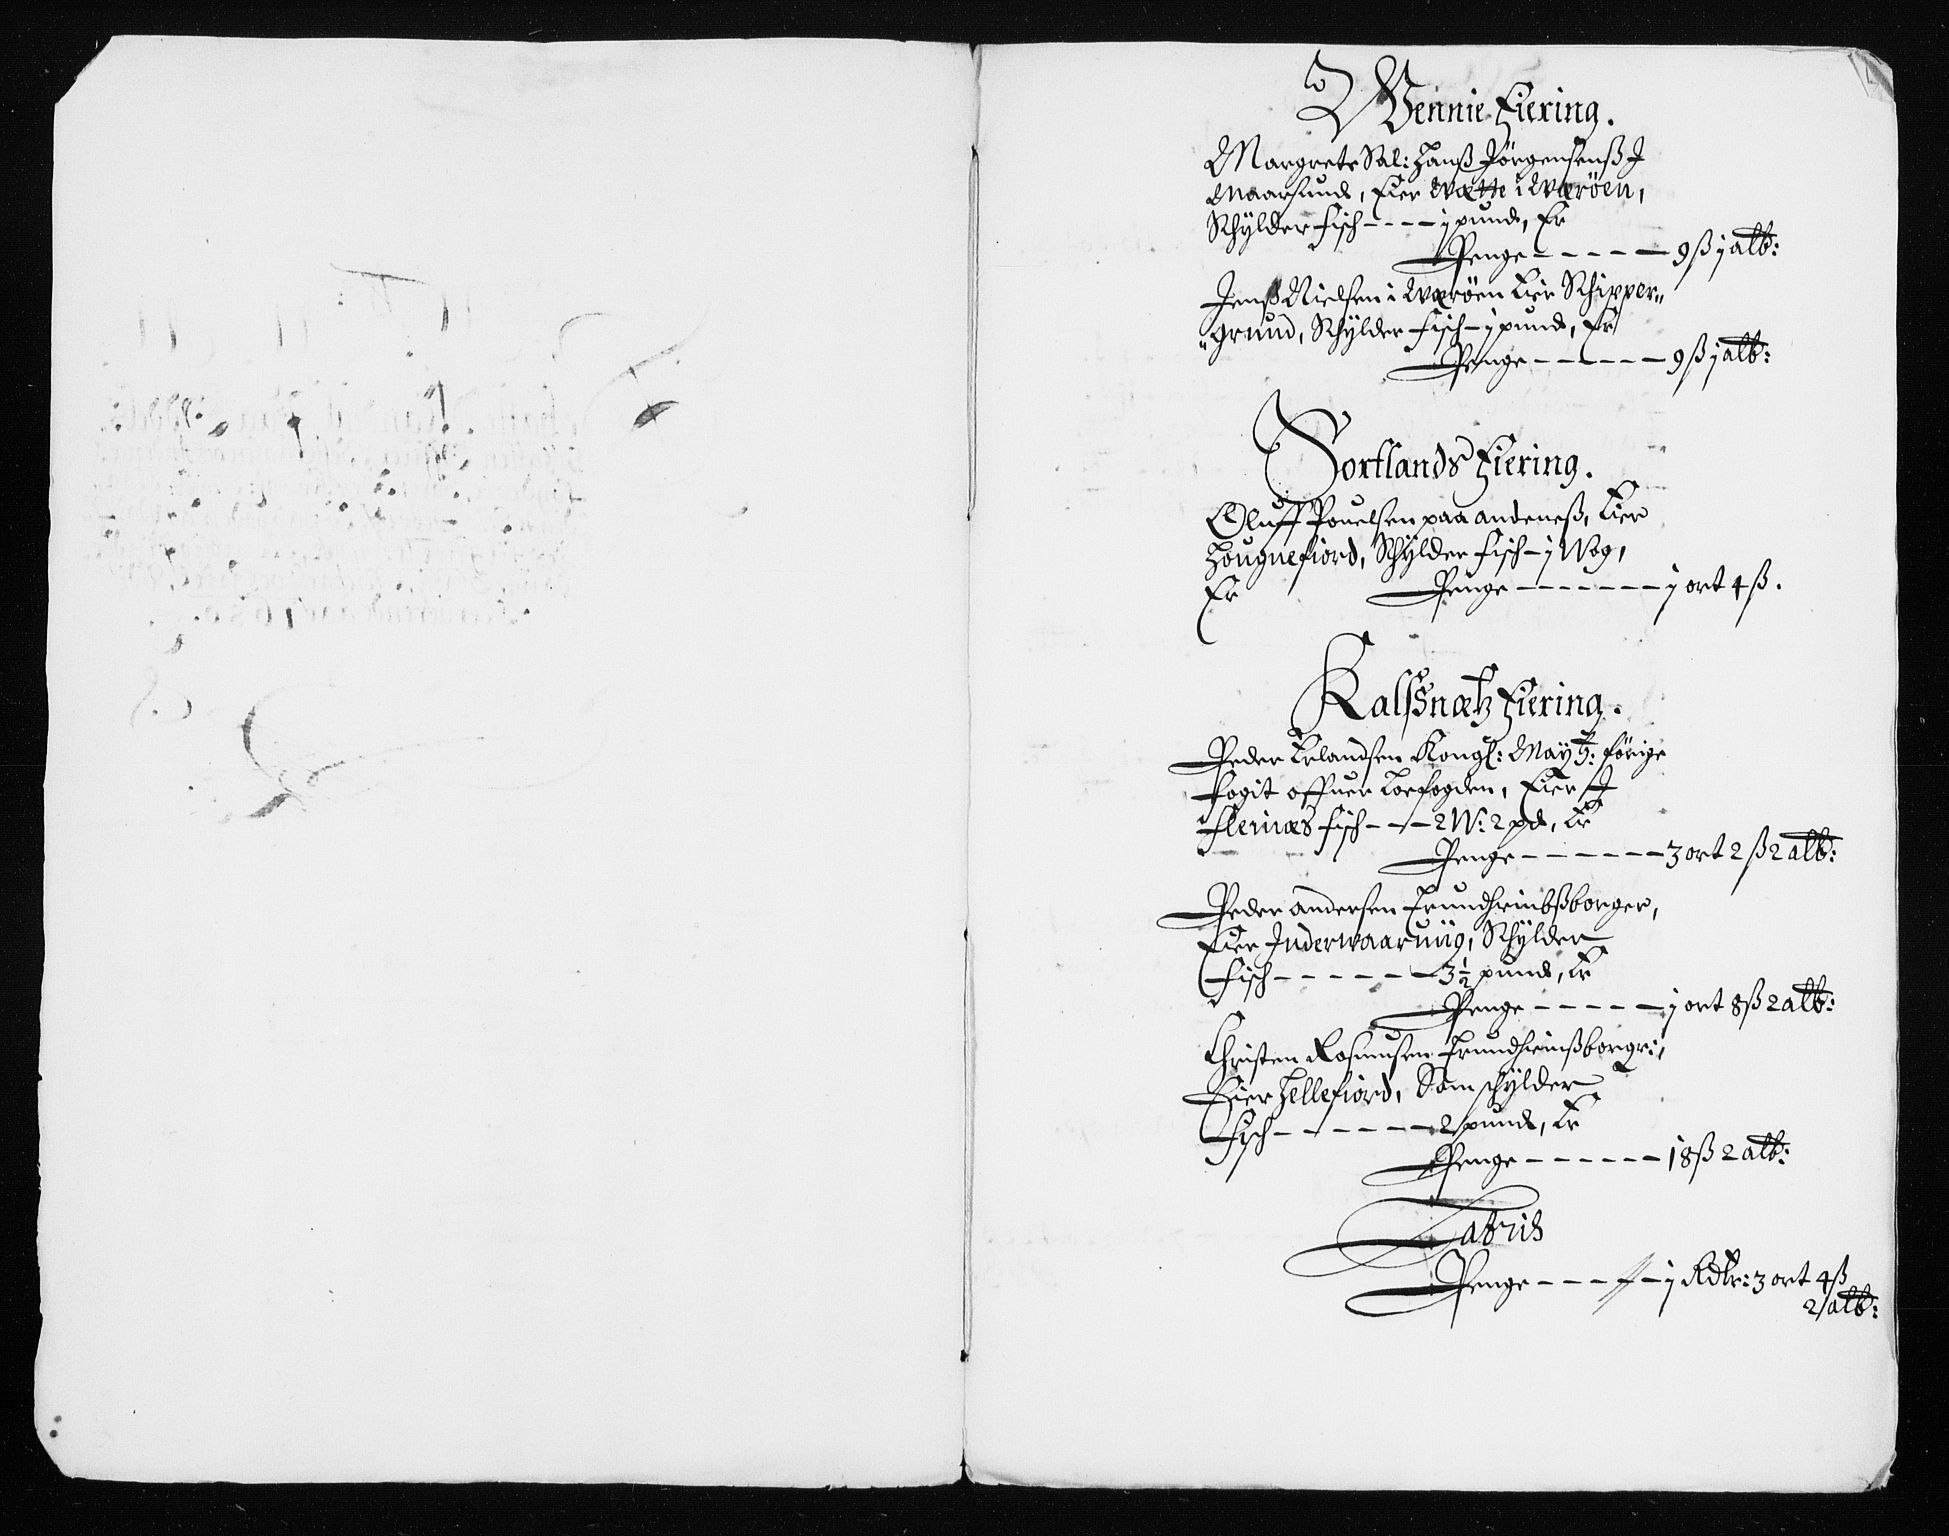 Wennie Fiering.
Margrete Sal: Hanß Jörgensenß J
Maarsund, Eier Wætte i Wæröen,
Schylder Fisch - - - - j pund, Er
Penge - - - - - 9 ß j alb:
Jenß Nielsen i Wæröen Eier Schipper„
„grund, Schylder Fisch - j pund, Er
Penge - - - - - 9 ß j alb:
Sortlands Fiering.
Oluff Pouelsen paa andeneß, Eier
Hougnefiord, Schylder Fisch - j Wog,
Er Penge - - - - - - - j ort 4 ß.
Kalßnætz Fiering.
Peder Erlandsen Kongl: Maytz: förige
Fogit offuer Loefogden, Eier J
Flernæs Fisch - - - 2 W: 2 pd, Er
Penge - - - - - - 3 ort 2 ß 2 alb:
Peder andersen Trundheimbßborger,
Eier Inderwaarviig, Schylder
Fisch - - - - - - 3½ pund, Er
Penge - - - - - j ort 8 ß 2 alb:
Christen Rasmusen Trundheimßborgr:,
Eier Hellefiord, Som schylder
Fisch - - - - - - 2 pund, Er
Penge - - - - - - 18 ß 2 alb:
Latris
Penge - - - - - j Rdlr: 3 ort 4 ß
2 alb: